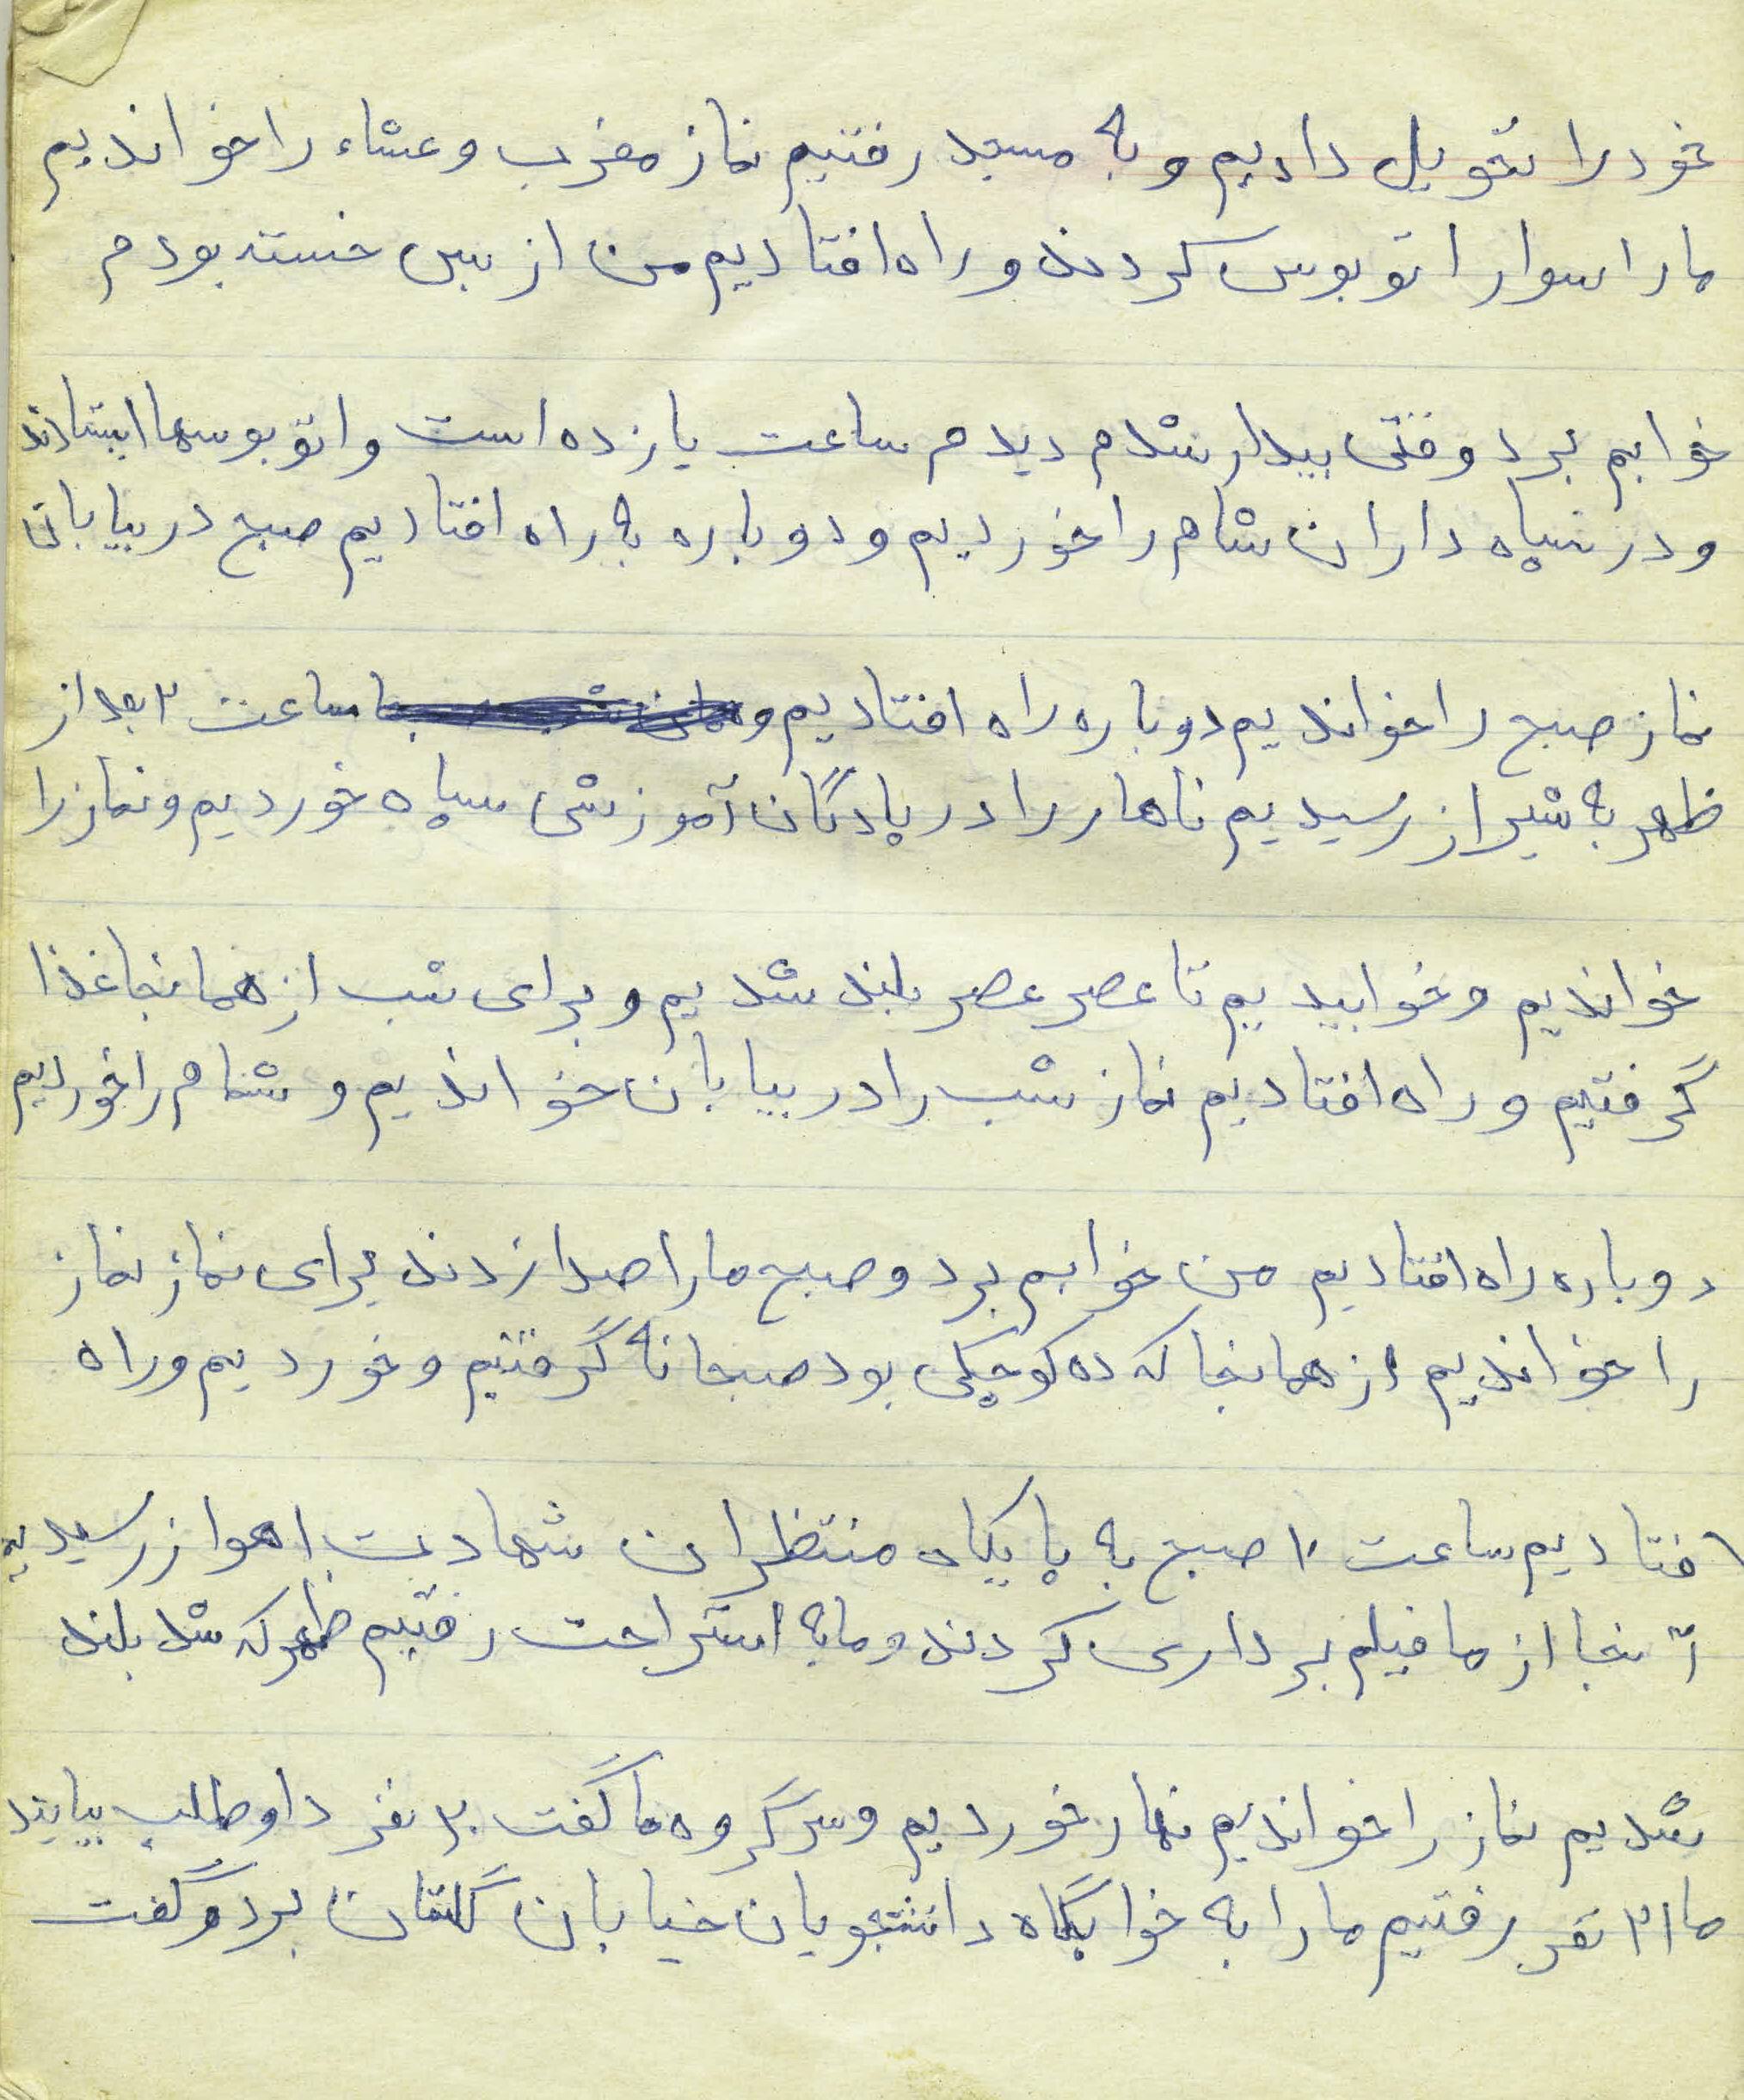 خود را تحویل دادیم و به مسجد رفتیم نماز مغرب و عشاء را خواندیم
ما را سوار اتوبوس کردند و راه افتادیم من از بس خسته بودم
خوابم برد وقتی بیدار شدم دیدم ساعت یازده است و اتوبوسها ایستادند
و در سپاه داران شام را خوردیم و دوباره به راه افتادیم صبح در بیابان
نماز صبح را خواندیم دوباره راه افتادیم و ساعت ۲ بعد از
ظهر به شیراز رسیدیم ناهار را در پادگان آموزشی سپاه خوردیم و نماز را
خواندیم و خوابیدیم تا عصر عصر بلند شدیم و برای شب از همانجا غذا
گرفتیم و راه افتادیم نماز شب را در بیابان خواندیم و شام را خوردیم
دوباره راه افتادیم من خوابم برد و صبح ما را صدا زدند برای نماز نماز
را خواندیم از همانجا که ده کوچکی بود صبحانه گرفتیم و خوردیم و راه
افتادیم ساعت ۱۰ صبح به پایگاه منتظران شهادت اهواز رسیدیم
آنجا از ما فیلم برداری کردند و ما به استراحت رفتیم ظهر که شد بلند
شدیم نماز را خواندیم نهار خوردیم و سرگروه ما گفت ۲۰ نفر داوطلب بیایند
ما ۲۱ نفر رفتیم ما را به خوابگاه دانشجویان خیابان گلستان برد و گفت